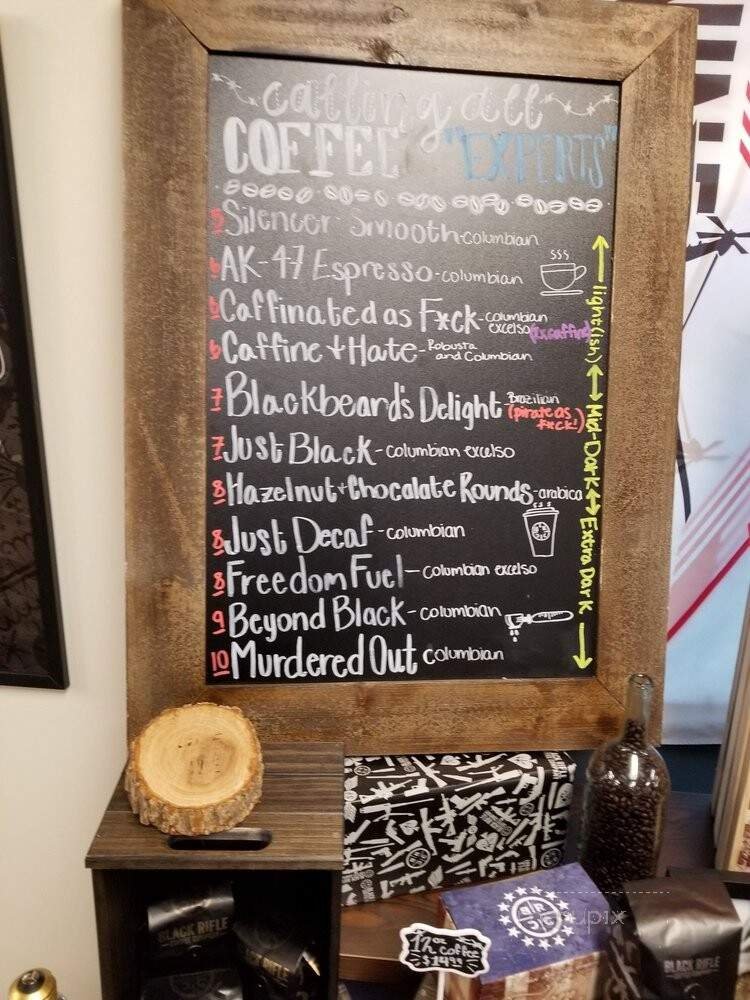 calling all
COFFEE "EXPERTS"
5 Silencer Smooth-columbian
AK-47 Espresso-columbian
Caffinated as F*ck-columbian excelso (2x caffine)
6 Caffine + Hate-Robusta and Columbian
7 Blackbeard's Delight Brazilian (pirate as f*ck!)
7 Just Black-columbian excelso
8 Hazelnut+Chocolate Rounds-arabica
8 Just Decaf-columbian
8 Freedom Fuel-columbian excelso
9 Beyond Black-columbian
10 Murdered Out columbian
light(ish)
Mid-Dark
Extra Dark
BLACK RIFLE
BLACK RIFLE
BRCC
12oz
coffee
$14.99
BLACK RIFLE